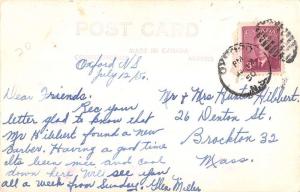 POST CARD
MADE IN CANADA
ADDRESS
20
Oxford N.S
July 12/50.
Dear Friends.
Rec your
letter glad to know that
Mr Hibbert found a new
Barber. Having a good time
its been nice and cool
down here. Will see you
all a week from Sunday. Ellen Miles
OXFORD
PM
50
N.S.
Mr & Mrs Hunter Hibbert
26 Denton St.
Brockton 32
Mass.